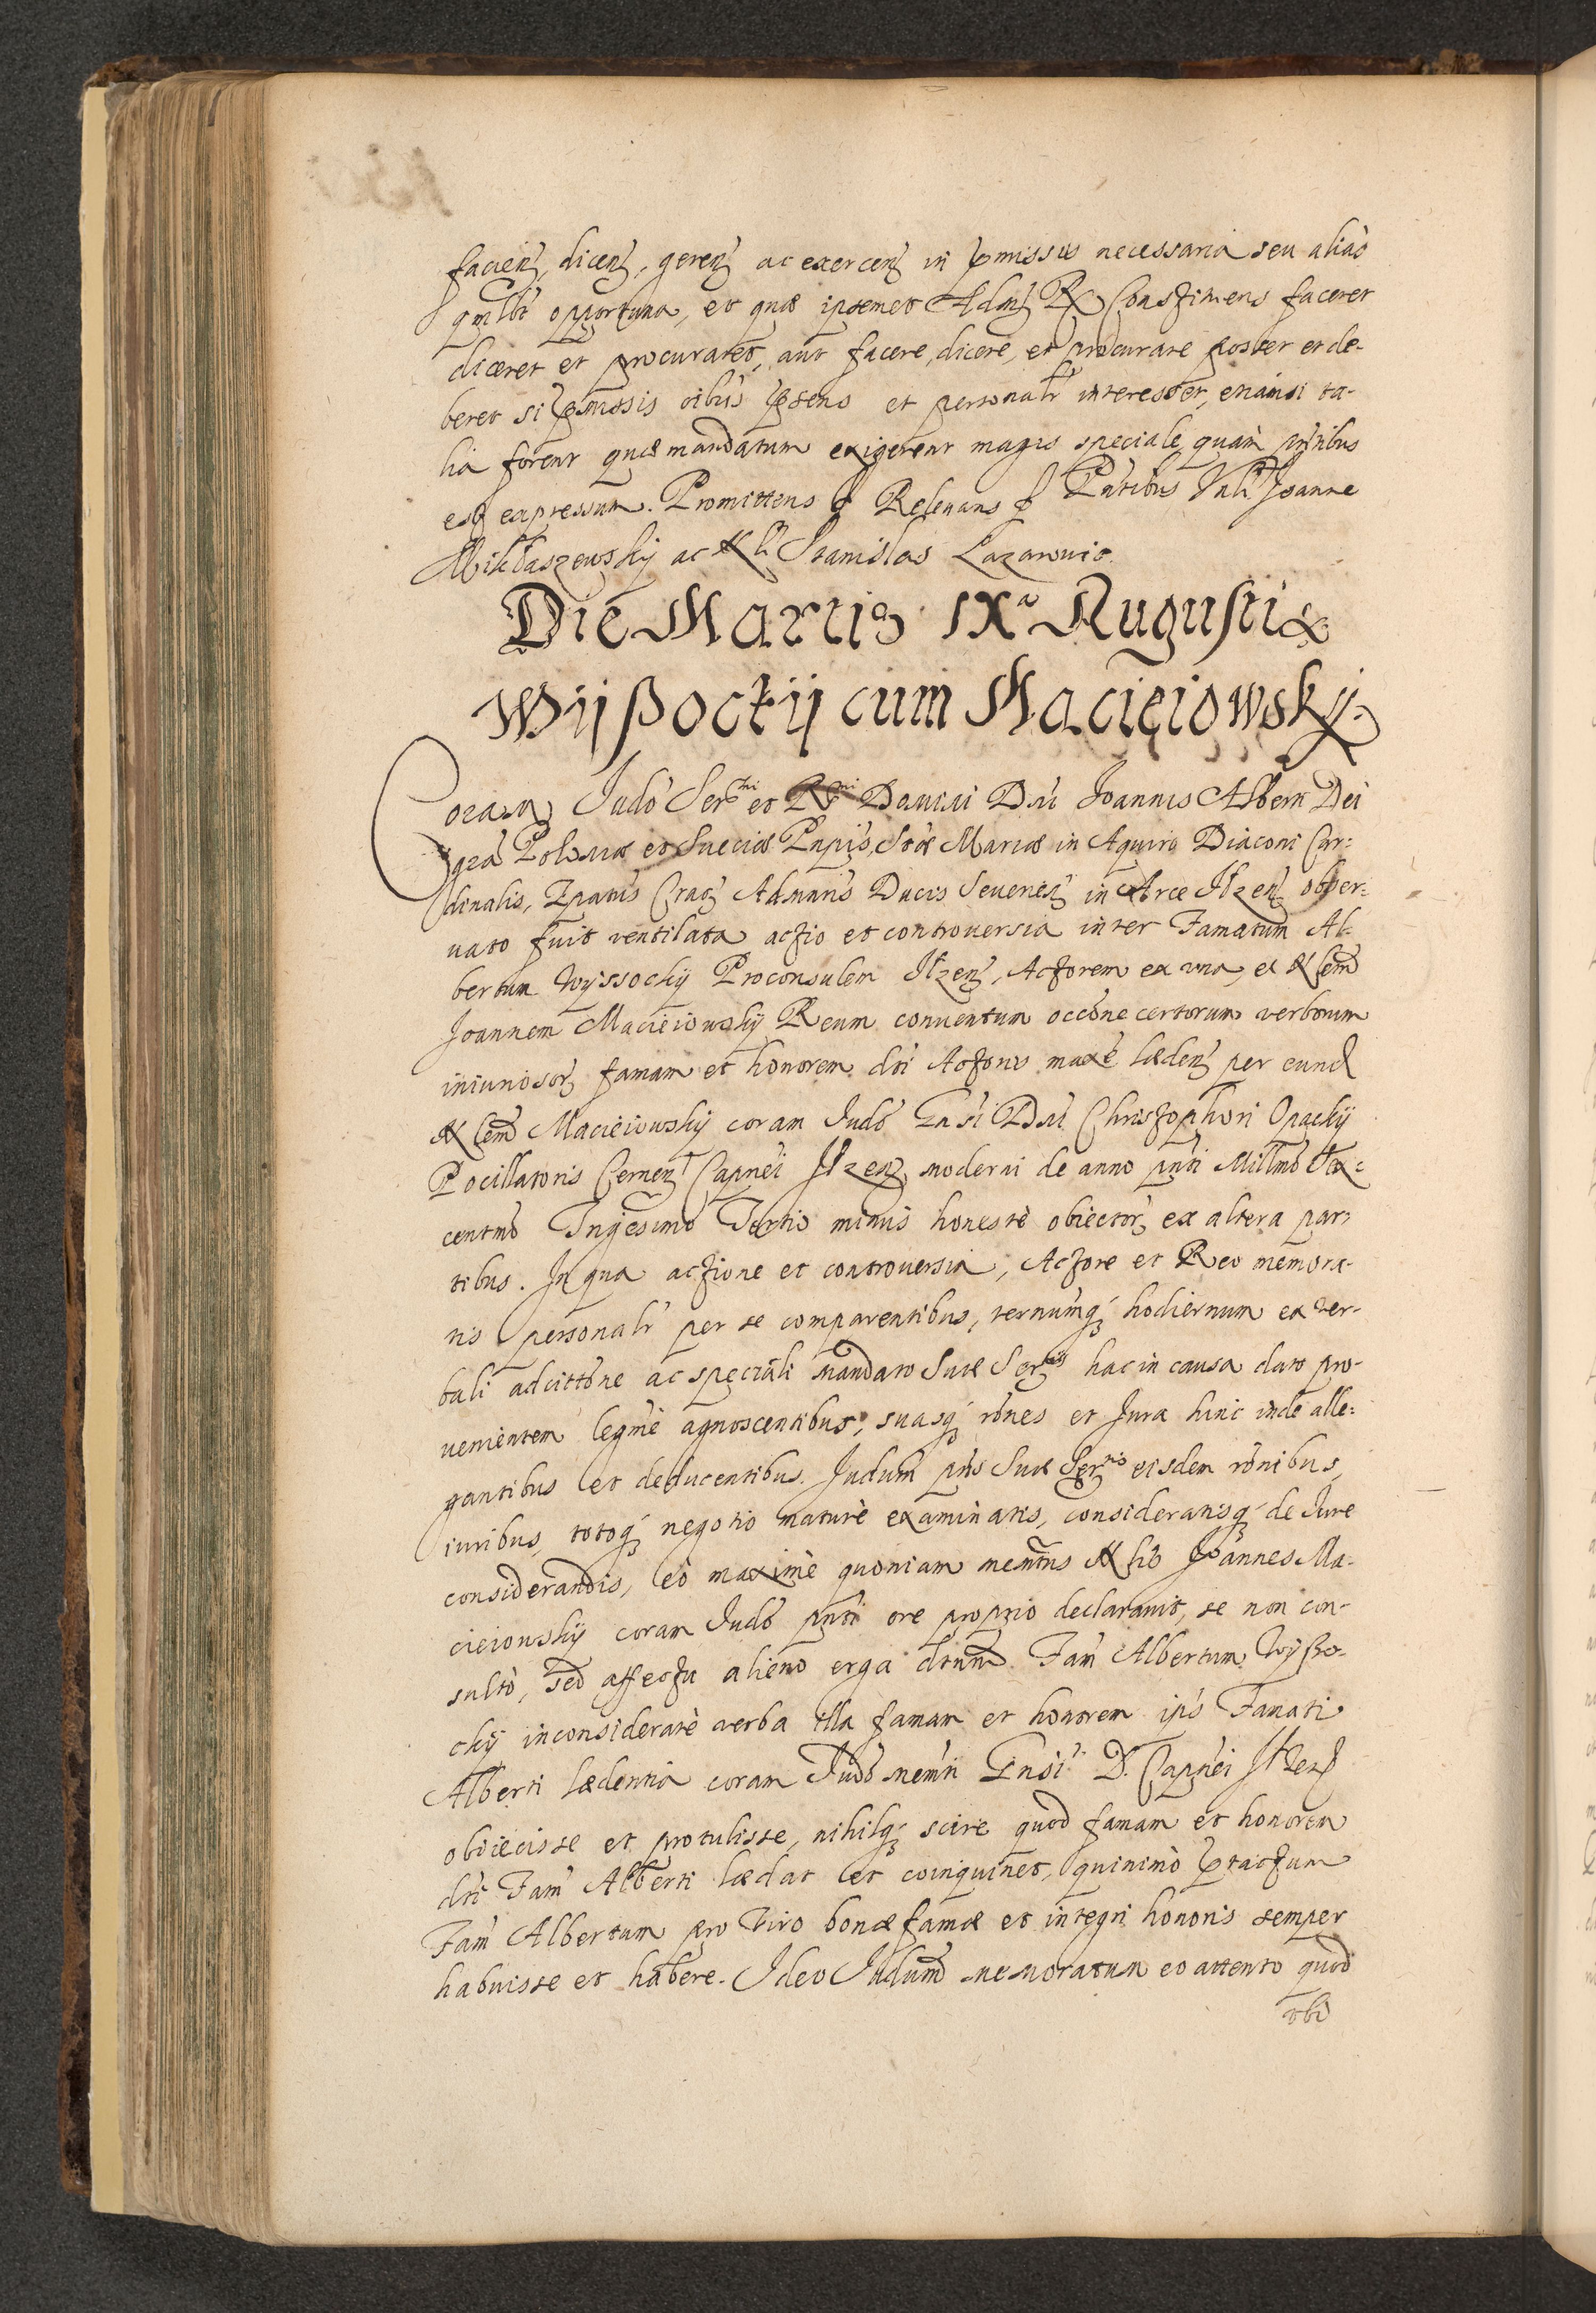 facien, dicen, geren ac exercen in pmissis necessaria seu alias
qmlbt opportuna, et quæ ipsemet Admn R Constituens faceret
diceret et procuraret, aut facere, dicere, et procurare posset et de-
beret si pmissis oibus psens et personalr interesset, etiamsi ta-
lia forent quæ mandatum exigerent magis speciale quam pntibus
est expressum. Promittens et Relevans Pntibus Nbli Joanne
Miklaszewskÿ ac Nbli Stanislao Lazarowic.
Die Martis IXa Augusti
Wÿßockÿ cum Macieiowskÿ
Coram Judo Sermi et Rmi Domini Dni Joannis Alberti Dei
gra Poloniæ et Sueciæ Pnpis, Stæ Mariæ in Aquiro Diaconi Car=
dinalis, Epatus Crac Admnris Ducis Severien in Arce Ilzen obser=
vato fuit ventilata actio et controversia inter Famatum Al-
bertum Wÿssockÿ Proconsulem Ilzen, Actorem ex una, et Nblem
Joannem Macieiowskÿ Reum conventum occone certorum verborum
iniuriosor, famam et honorem dti Actoris maxe læden per eund
Nblem Macieiowskÿ coram Judo Gnsi Dni Christophori Opackÿ
Pocillatoris Cernen Capnei Ilzen moderni de anno pnti Millmo Sex=
centmo Trigesimo Tertio minus honeste obiector, ex altera par=
tibus. In qua actione et controversia, Actore et Reo memora-
tis personalr per se comparentibus, ternumq hodiernum ex ver-
bali adcittone ac speciali mandato Suæ Sertis hac in causa dato pro-
venientem legme agnoscentibus, suasq rones et Jura hinc inde alle=
gantibus et deducentibus. Judum pns Suæ Sertis eisdem ronibus,
iuribus, totoq negotio mature examinatis, consideratisq de Jure
considerandis, eo maxime quoniam memtus Nblis Joannes Ma-
cieiowskÿ coram Judo pnti ore proprio declaravit, se non con-
sulto, sed affectu alieno erga dtum Fam Albertum Wÿsso-
ckÿ inconsiderate verba illa famam et honorem ips Famati
Alberti lædentia coram Judo memti Gnsi D. Capnei Ilzen
obiecisse et protulisse, nihilq scire quod famam et honorem
dti Fam Alberti lædat et coinquinet, quinimo ptactum
Fam Albertum pro Viro bonæ famæ et integri honoris semper
habuisse et habere. Ideo Judum memoratum eo attento quod
ubi